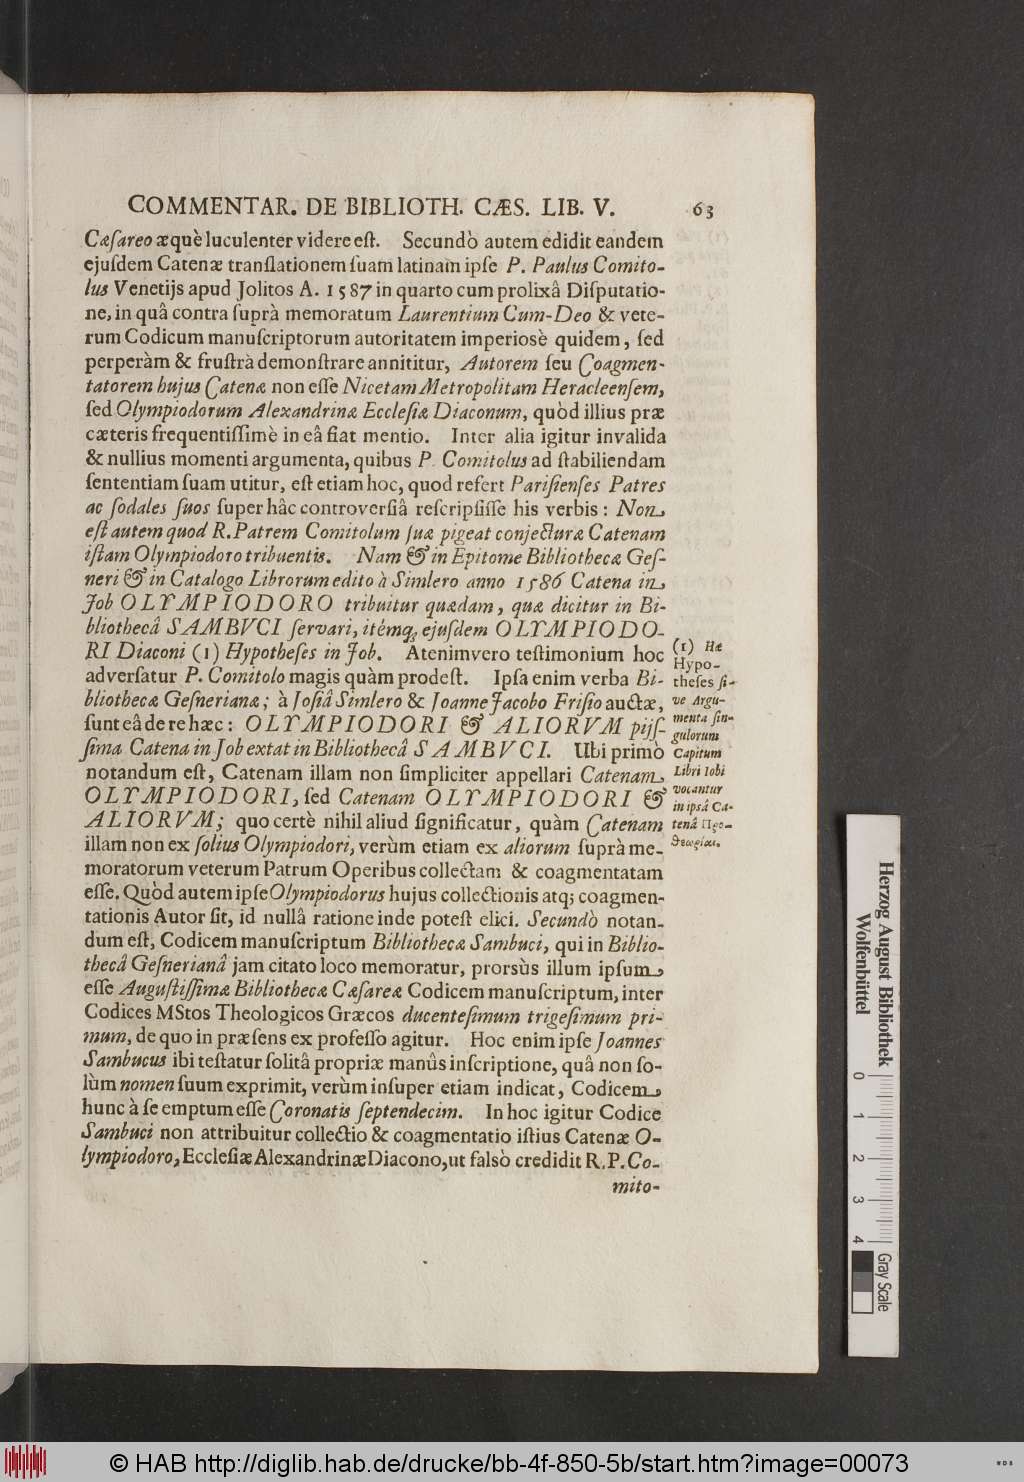 COMMENTAR. DE BIBLIOTH. CÆS. LIB. V. 63
Cæſareo æquè luculenter videre eſt. Secundò autem edidit eandem
ejuſdem Catenæ tranſlationem ſuam latinam ipſe P. Paulus Comito-
lus Venetijs apud Jolitos A. 1587 in quarto cum prolixâ Diſputatio-
ne, in quâ contra ſuprà memoratum Laurentium Cum-Deo & vete-
rum Codicum manuſcriptorum autoritatem imperiosè quidem, ſed
perperàm & fruſtrà demonſtrare annititur, Autorem ſeu Coagmen-
tatorem hujus Catenæ non eſſe Nicetam Metropolitam Heracleenſem,
ſed Olympiodorum Alexandrinæ Eccleſiæ Diaconum, quòd illius præ
cæteris frequentiſſimè in eâ fiat mentio. Inter alia igitur invalida
& nullius momenti argumenta, quibus P. Comitolus ad ſtabiliendam
ſententiam ſuam utitur, eſt etiam hoc, quod refert Pariſienſes Patres
ac ſodales ſuos ſuper hâc controverſiâ reſcripſiſſe his verbis: Non
eſt autem quod R. Patrem Comitolum ſuæ pigeat conjecturæ Catenam
iſtam Olympiodoro tribuentis. Nam & in Epitome Bibliothecæ Geſ-
neri & in Catalogo Librorum edito à Simlero anno 1586 Catena in
Job OLYMPIODORO tribuitur quædam, quæ dicitur in Bi-
bliothecâ SAMBVCI ſervari, itémq; ejuſdem OLYMPIODO-
RI Diaconi (1) Hypotheſes in Job. Atenimvero teſtimonium hoc
adverſatur P. Comitolo magis quàm prodeſt. Ipſa enim verba Bi-
bliothecæ Geſnerianæ; à Joſiâ Simlero & Joanne Jacobo Friſio auctæ,
ſunt eâ de re hæc: OLYMPIODORI & ALIORVM pijſ-
ſima Catena in Job extat in Bibliothecâ SAMBVCI. Ubi primò
notandum eſt, Catenam illam non ſimpliciter appellari Catenam
OLYMPIODORI, ſed Catenam OLYMPIODORI &
ALIORVM; quo certè nihil aliud ſignificatur, quàm Catenam
illam non ex ſolius Olympiodori, verùm etiam ex aliorum ſuprà me-
moratorum veterum Patrum Operibus collectam & coagmentatam
eſſe. Quòd autem ipſe Olympiodorus hujus collectionis atq; coagmen-
tationis Autor ſit, id nullâ ratione inde poteſt elici. Secundò notan-
dum eſt, Codicem manuſcriptum Bibliothecæ Sambuci, qui in Biblio-
thecâ Geſnerianâ jam citato loco memoratur, prorsùs illum ipſum
eſſe Auguſtiſſimæ Bibliothecæ Cæſareæ Codicem manuſcriptum, inter
Codices MStos Theologicos Græcos ducenteſimum trigeſimum pri-
mum, de quo in præſens ex profeſſo agitur. Hoc enim ipſe Joannes
Sambucus ibi teſtatur ſolitâ propriæ manûs inſcriptione, quâ non ſo-
lùm nomen ſuum exprimit, verùm inſuper etiam indicat, Codicem
hunc à ſe emptum eſſe Coronatis ſeptendecim. In hoc igitur Codice
Sambuci non attribuitur collectio & coagmentatio iſtius Catenæ O-
lympiodoro, Eccleſiæ Alexandrinæ Diacono, ut falsò credidit R. P. Co-
mito-
(1) Hæ
Hypo-
theſes ſi-
ve Argu-
menta ſin-
gulorum
Capitum
Libri Iobi
vocantur
in ipsâ Ca-
tenâ Προ-
θεωρίαι.
Herzog August Bibliothek
Wolfenbüttel
0 1 2 3 4
Gray Scale
© HAB http://diglib.hab.de/drucke/bb-4f-850-5b/start.htm?image=00073